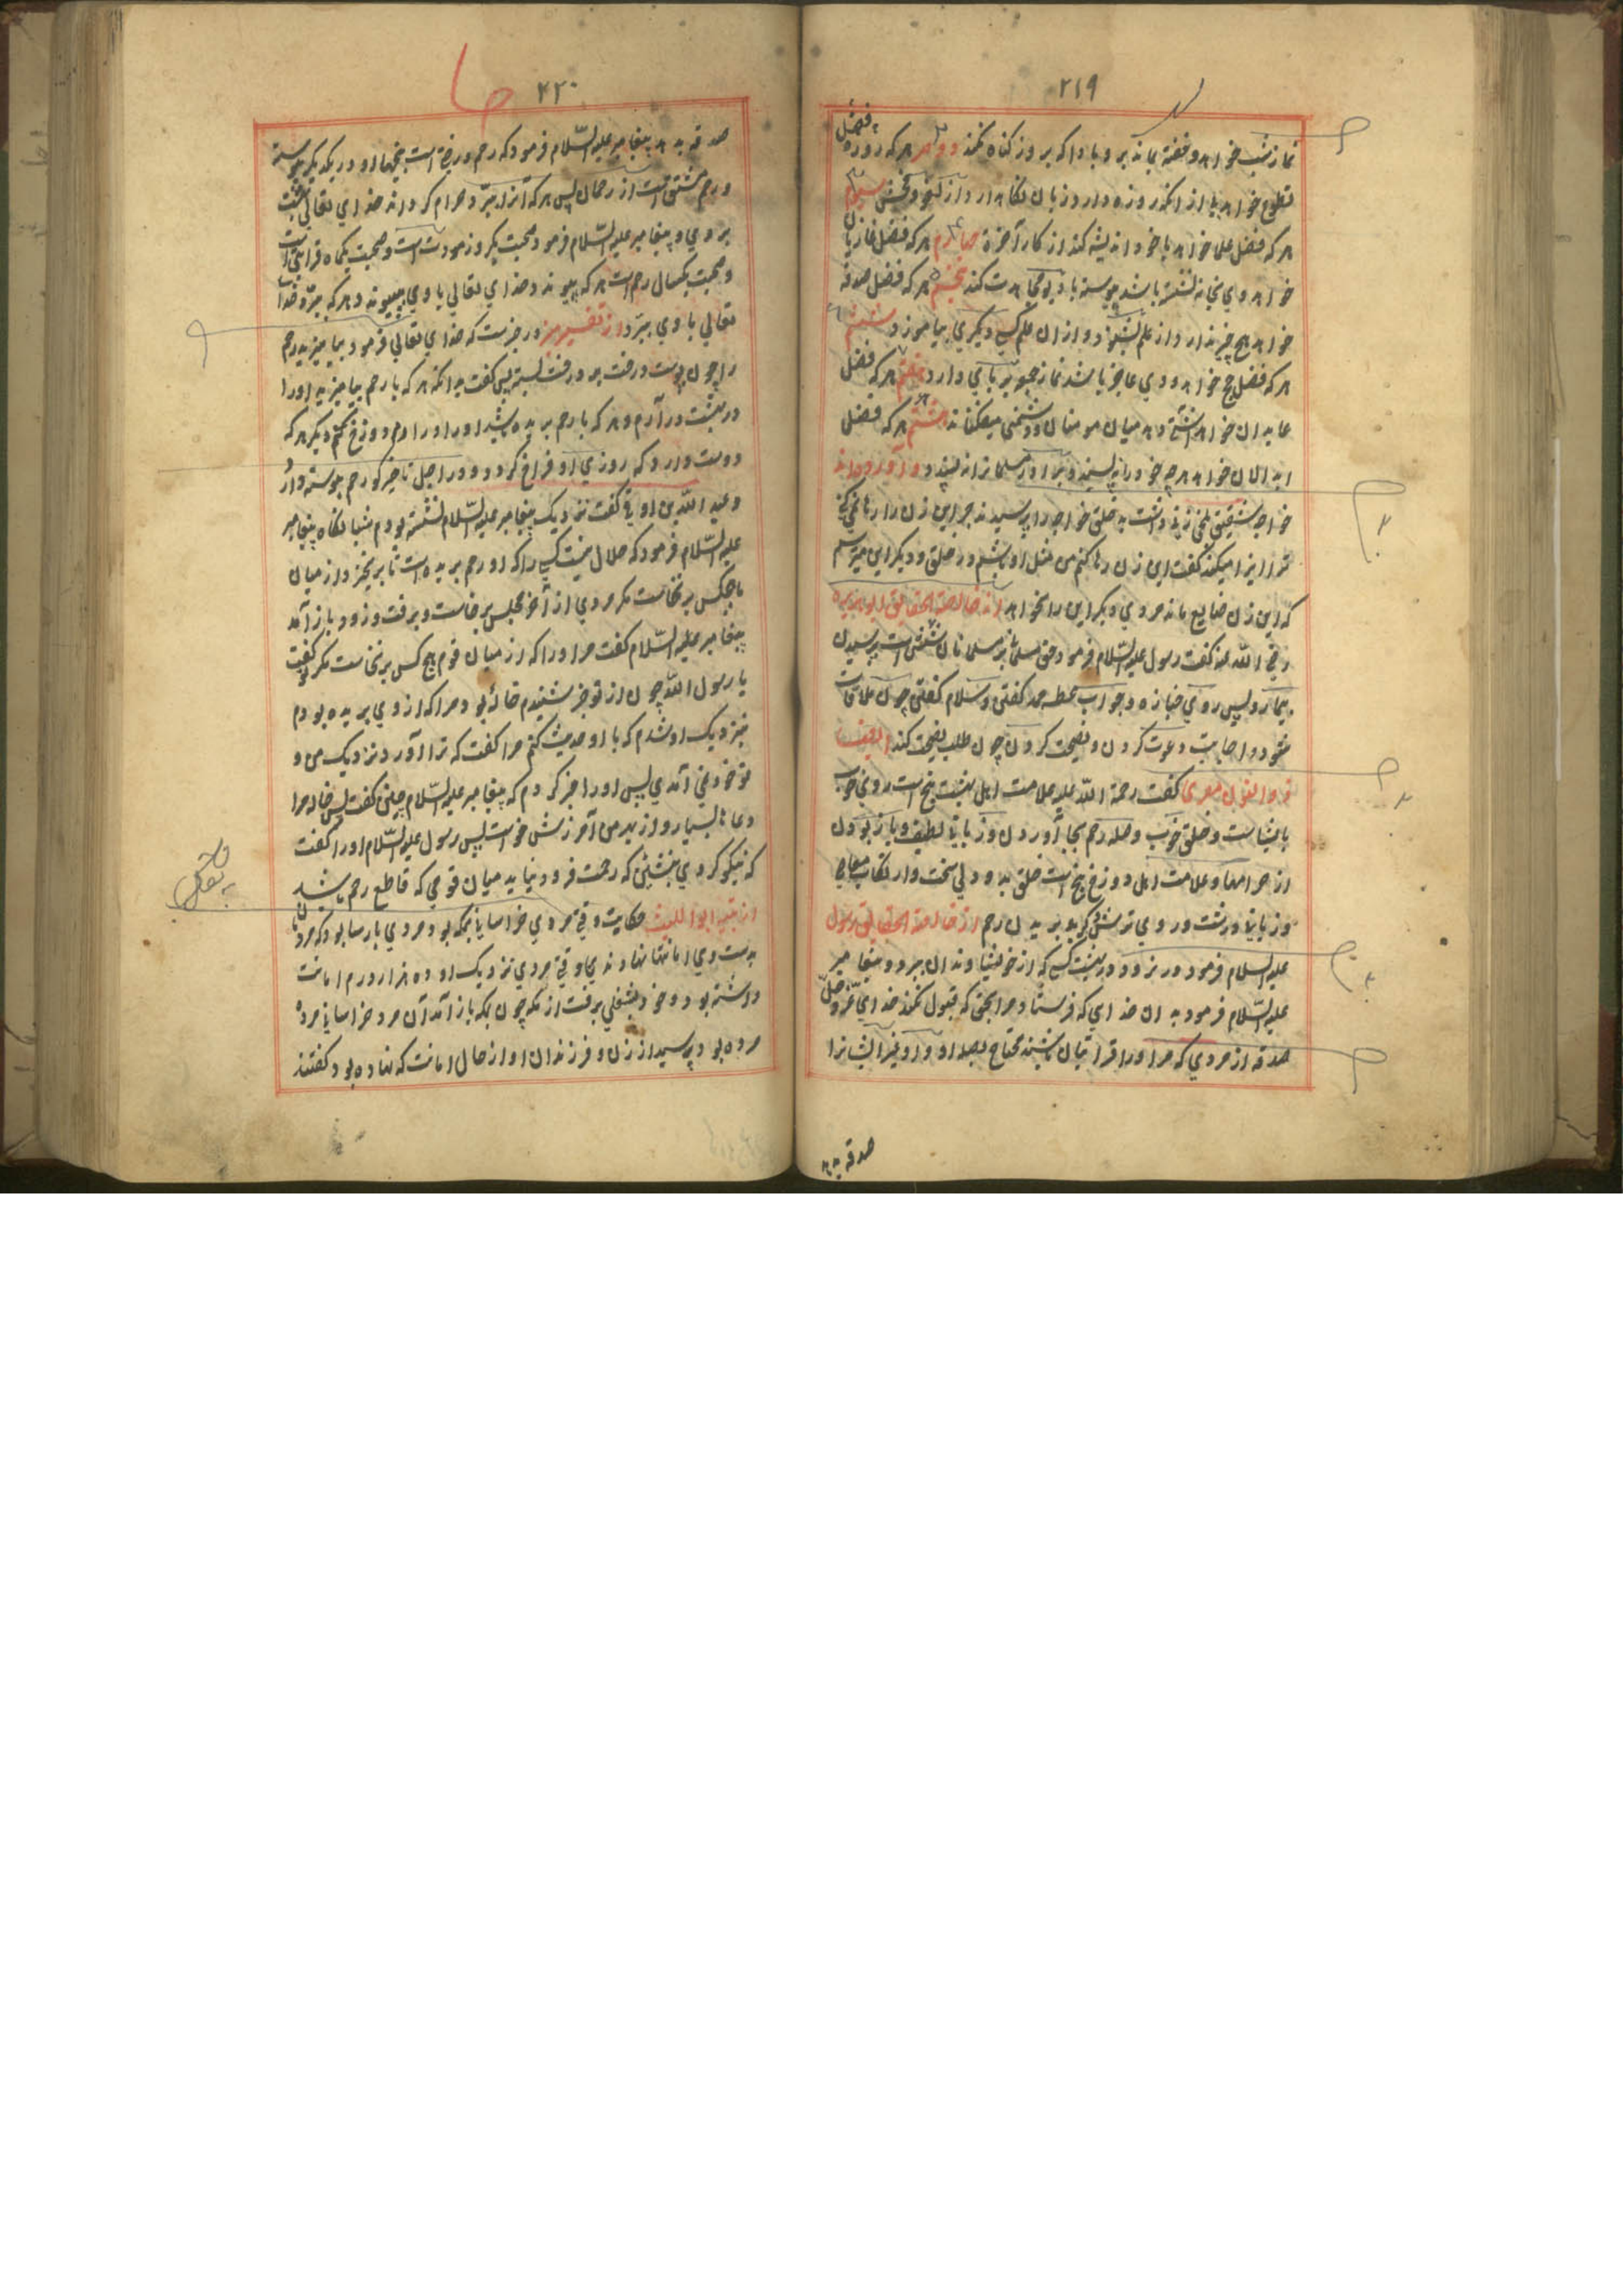 ۲۱۹
نماز شب خواهد و خفته بماند بر وباد که بروز کناه نکند دویم هر که روزه
تطوع خواهد باز انکه روزه دارد زبان نکاهدارد از لغو و فحش سیوم
هر که فضل علما خواهد باخود اندیشه کند از کار آخرة چهارم هر که فضل غازیان
خواهد وی بخانه نشسته باشد پیوسته با دیو مجاهدت کند پنجم هر که فضل صدقه
خواهد هیچ چیز ندارد از علم بشنود و از ان علم کسی دیکری بیاموزد ششم
هر که فضل حج خواهد و وی عاجز باشد نماز جمعه بر پای دارد هفتم هر که فضل
عابدان خواهد آشتی دهد میان مومنان و دشمنی نیفکند هشتم هر که فضل
ابدالان خواهد هرچه خود را نه پسندد برادر مسلمانرا نه پسندد و آورده اند
خواجه شقیق بلخی زنی داشت بد خلق خواجه را پرسیدند چرا این زن را رها نمی کنی
ترا ایذا میکند کفت این زن رها کنم من مثل او باشم در خلق و دیکر این میترسم
که این زن ضایع ماند مردی دیکر این را نخواهد از خالصة الحقایق ابو هریره
رضی الله عنه کفت رسول علیه السّلام فرمود حق مسلمانی بر مسلمانان شش است پرسیدن
بیمار و پس روی جنازه و جواب عطسه حمد کفتن و سلام کفتن چون ملاقات
شود و اجابت دعوت کردن و نصیحت کردن چون طلب نصیحت کند ایضا
ذوالنون مصری کفت رحمة الله علیه علامت اهل بهشت پنج است روی خوب
با بشاشت و خلق خوب و صله رحم بجا آوردن و زبانی لطیف و باز بودن
از حرامها و علامت اهل دوزخ پنج است خلق بد و دلی سخت و ارتکاب معاصی
و زبانی درشت و روی ترش کریه بریدن رحم از خالصة الحقایق رسول
علیه السلام فرمود در نرود در بهشت کسی که از خویشاوندان ببرد و پیغامبر
علیه السّلام فرمود بدان خدای که فرستاد مرا بحق که قبول نکند خدای عزّوجلّ
صدقه از مردی که مر اورا قرابتیان باشند محتاج بصله او و او غیر ایشانرا
صدقه بدهد
۲۲۰
صدقه بدهد پیغامبر علیه السّلام فرمود که رحم درختی است بیخها او در یکدیکر پیوسته
و رحم مشتق است از رحمان پس هر که آنرا ببرّد حرام کرداند خدای تعالی بهشت
بر وی و پیغامبر علیه السّلام فرمود صحبت یکروز مودت است و صحبت یکماه قرابتی است
و صحبت یکسال رحم است هر که پیوندد خدای تعالی با وی بپیوندد و هر که ببرّد خدا
تعالی با وی ببرّد از تفسیر در خبرست که خدای تعالی فرمود بیامیزید رحم
را چون پوست درخت بر درخت بسته پس کفت بدانکه هر که با رحم بیامیزید اورا
در بهشت درآرم و هر که با رحم بریده باشید اورا در آرم دوزخ کنم دیکر هر که
دوست دارد که روزی او فراخ کردد و در اجل تاخیر کو رحم پیوسته دار
و عبد الله بن اوفی کفت نزدیک پیغامبر علیه السّلام نشسته بودم شبانکاه پیغامبر
علیه السّلام فرمود که حلال نیست کسی را که او رحم بریده است تا برنخیزد از میان
ما هیچکس برنخاست مکر مردی از آخر مجلس برخاست و برفت و زود باز آمد
پیغامبر علیه السّلام کفت مر اورا که از میان قوم هیچ کس برنخاست مکر تو کفت
یا رسول اللّه چون از تو خبر شنیدم خاله بود مرا که از وی بریده بودم
بنزدیک او شدم که با او حدیث کنم مرا کفت که ترا آورد نزدیک من و
تو خود نمی آمدی پس اورا خبر کردم که پیغامبر علیه السّلام چنین کفت پس خاله مرا
دعاها بسیار و از بهر من آمرزش خواست پس رسول علیه السّلام اورا کفت
که نیکو کردی بنشینی که رحمت فرود نیاید میان قومی که قاطع رحم باشد
از تنبیه ابو اللیث حکایت وقتی مردی خراسانی بمکه بود مردی پارسا بود که مردمان
بدست وی امانتها نهادندی و وقتی مردی نزدیک او ده هزار درم امانت
داشته بود و خود بشغلی برفت از مکه چون بمکه باز آمد آن مرد خراسانی مرده
مرده بود پرسید از زن و فرزندان او از حال امانت که نهاده بود کفتند